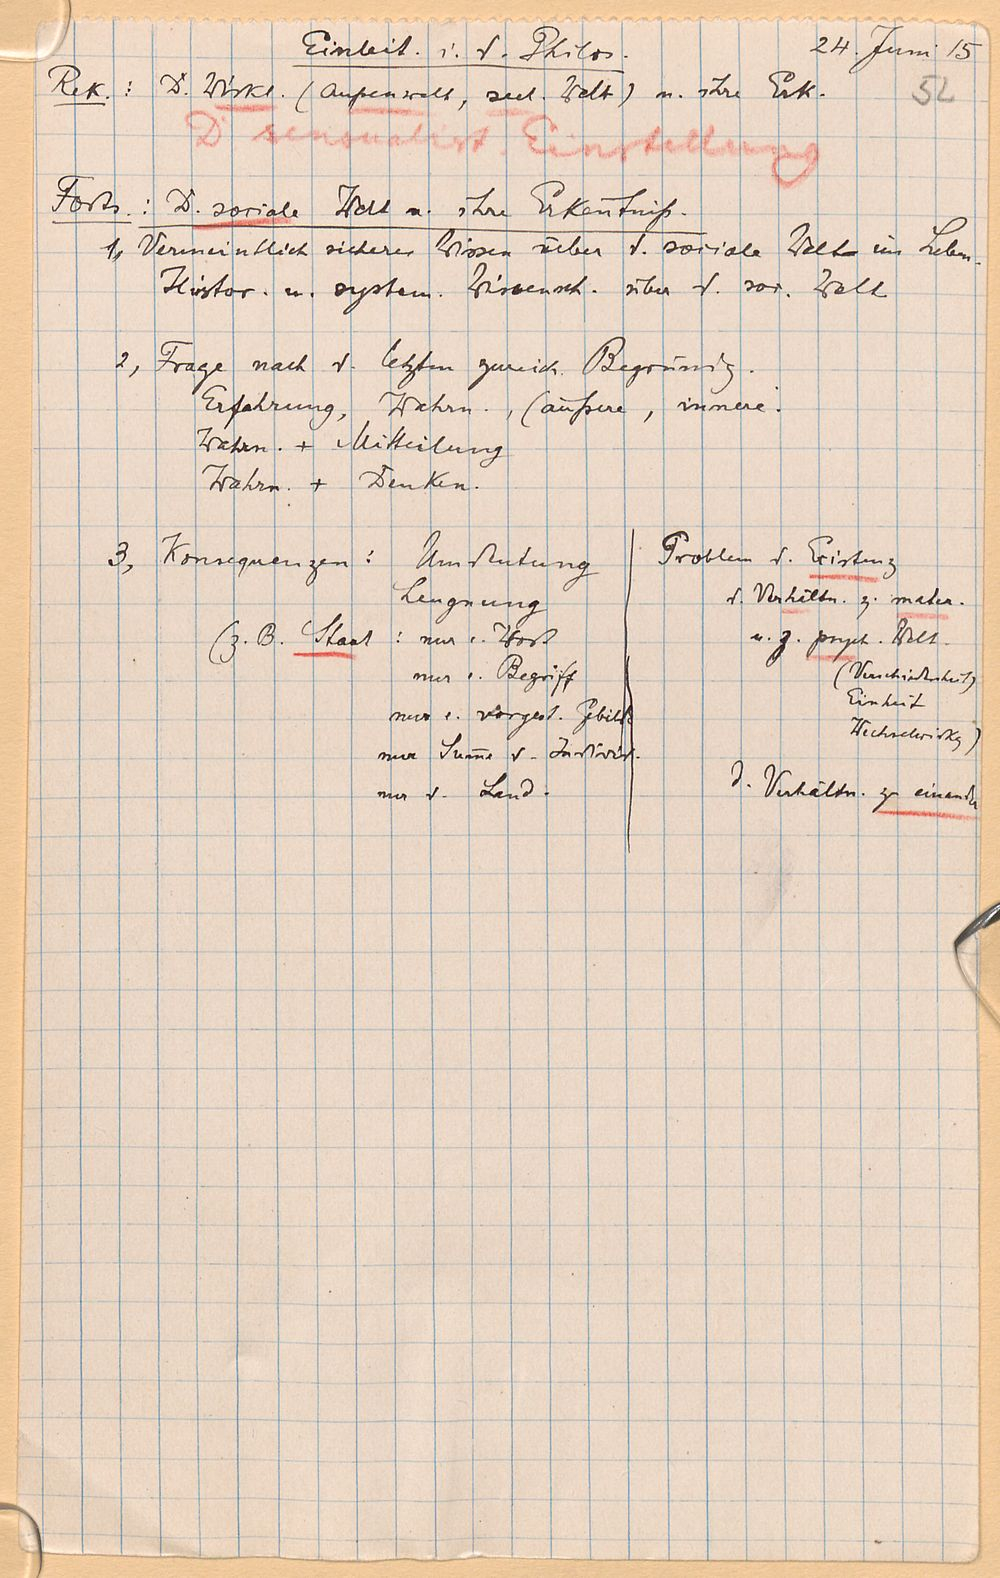 Einleit. i. d. Philos. 24. Juni 15
Rek.: D. Wirkl. (Außenwelt, seel. Welt) u. ihre Erk. 52
D sensualist. Einstellung
Forts.: D. soziale Welt u. ihre Erkenntniß.
1, Vermeintlich sicheres Wissen über d. soziale Welt im Leben.
Histor. u. system. Wissensch. über d. soz. Welt
2, Frage nach d. letzten zureich. Begründg.
Erfahrung, Wahrn., (äußere, innere.
Wahrn. + Mitteilung
Wahrn. + Denken.
3, Konsequenzen: Umdeutung
Leugnung
(z. B. Staat: nur e. Wort
nur e. Begriff
nur e. vorgest. Gebilde
nur Summe d. Individ.
nur d. Land.
Problem d. Existenz
d. Verhältn. z. mater.
u. z. psych. Welt.
(Verschiedenheit)
Einheit
Wechselwirkg)
d. Verhältn. zu einander